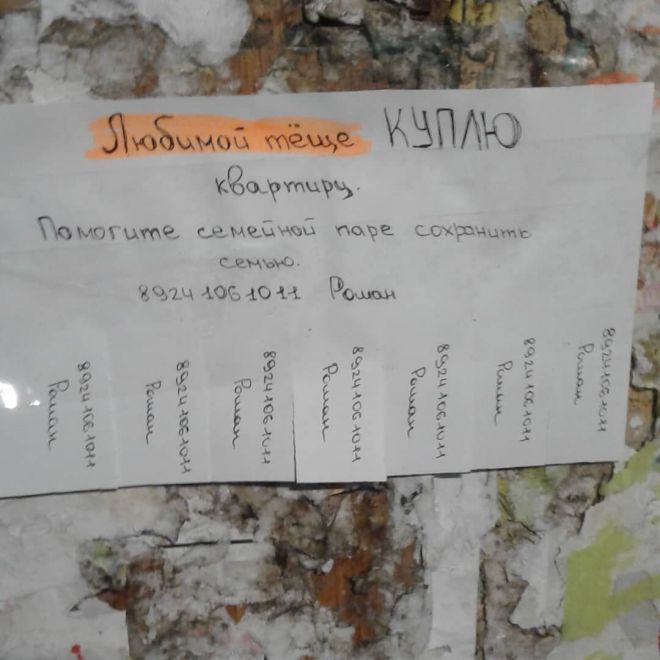 Любимой тёще КУПЛЮ
квартиру.
Помогите семейной паре сохранить
семью.
89241061011 Роман
89241061011
Роман
89241061011
Роман
89241061011
Роман
89241061011
Роман
89241061011
Роман
89241061011
Роман
89241061011
Роман